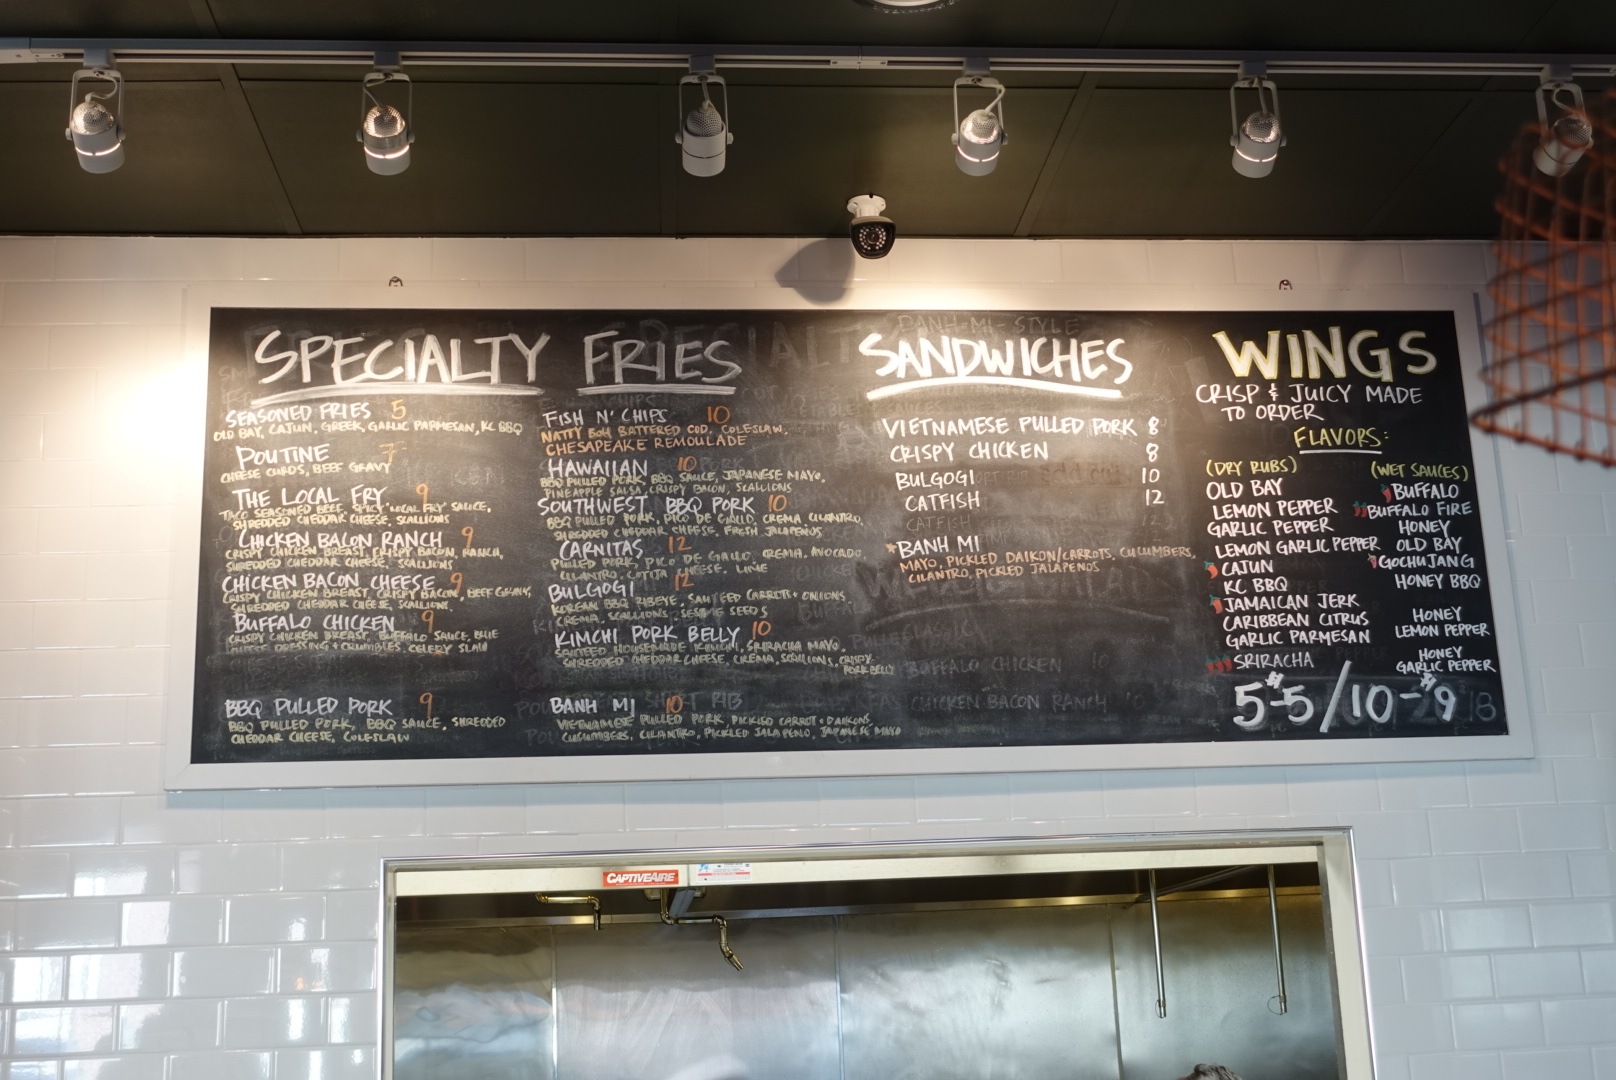 SPECIALTY FRIES
SEASONED FRIES 5
OLD BAY, CAJUN, GREEK, GARLIC PARMESAN, KC BBQ
POUTINE 7
CHEESE CURDS, BEEF GRAVY
THE LOCAL FRY 9
TACO SEASONED BEEF, SPICY "LOCAL FRY" SAUCE,
SHREDDED CHEDDAR CHEESE, SCALLIONS
CHICKEN BACON RANCH 9
CRISPY CHICKEN BREAST, CRISPY BACON, RANCH,
SHREDDED CHEDDAR CHEESE, SCALLIONS
CHICKEN BACON CHEESE 9
CRISPY CHICKEN BREAST, CRISPY BACON, BEEF GRAVY,
SHREDDED CHEDDAR CHEESE, SCALLIONS
BUFFALO CHICKEN 9
CRISPY CHICKEN BREAST, BUFFALO SAUCE, BLUE
CHEESE DRESSING + CRUMBLES, CELERY SLAW
BBQ PULLED PORK 9
BBQ PULLED PORK, BBQ SAUCE, SHREDDED
CHEDDAR CHEESE, COLESLAW
FISH N' CHIPS 10
NATTY BOH BATTERED COD, COLESLAW,
CHESAPEAKE REMOULADE
HAWAIIAN 10
BBQ PULLED PORK, BBQ SAUCE, JAPANESE MAYO,
PINEAPPLE SALSA, CRISPY BACON, SCALLIONS
SOUTHWEST BBQ PORK 10
BBQ PULLED PORK, PICO DE GALLO, CREMA, CILANTRO,
SHREDDED CHEDDAR CHEESE, FRESH JALAPENOS
CARNITAS 12
PULLED PORK, PICO DE GALLO, CREMA, AVOCADO,
CILANTRO, COTIJA CHEESE, LIME
BULGOGI 12
KOREAN BBQ RIBEYE, SAUTEED CARROTS + ONIONS
CREMA, SCALLIONS, SESAME SEEDS
KIMCHI PORK BELLY 10
SAUTEED HOUSEMADE KIMCHI, SRIRACHA MAYO,
SHREDDED CHEDDAR CHEESE, CREMA, SCALLIONS, CRISPY
PORK BELLY
BANH MI 10
VIETNAMESE PULLED PORK, PICKLED CARROT + DAIKONS,
CUCUMBERS, CILANTRO, PICKLED JALAPENO, JAPANESE MAYO
SANDWICHES
VIETNAMESE PULLED PORK 8
CRISPY CHICKEN 8
BULGOGI 10
CATFISH 12
CATFISH
*BANH MI
MAYO, PICKLED DAIKON/CARROTS, CUCUMBERS,
CILANTRO, PICKLED JALAPENOS
BUFFALO CHICKEN 10
CHICKEN BACON RANCH 10
WINGS
CRISP & JUICY MADE
TO ORDER
FLAVORS:
(DRY RUBS)
OLD BAY
LEMON PEPPER
GARLIC PEPPER
LEMON GARLIC PEPPER
CAJUN
KC BBQ
JAMAICAN JERK
CARIBBEAN CITRUS
GARLIC PARMESAN
SRIRACHA
(WET SAUCES)
BUFFALO
BUFFALO FIRE
HONEY
OLD BAY
GOCHUJANG
HONEY BBQ
HONEY
LEMON PEPPER
HONEY
GARLIC PEPPER
5-$5/10-$9
CAPTIVEAIRE